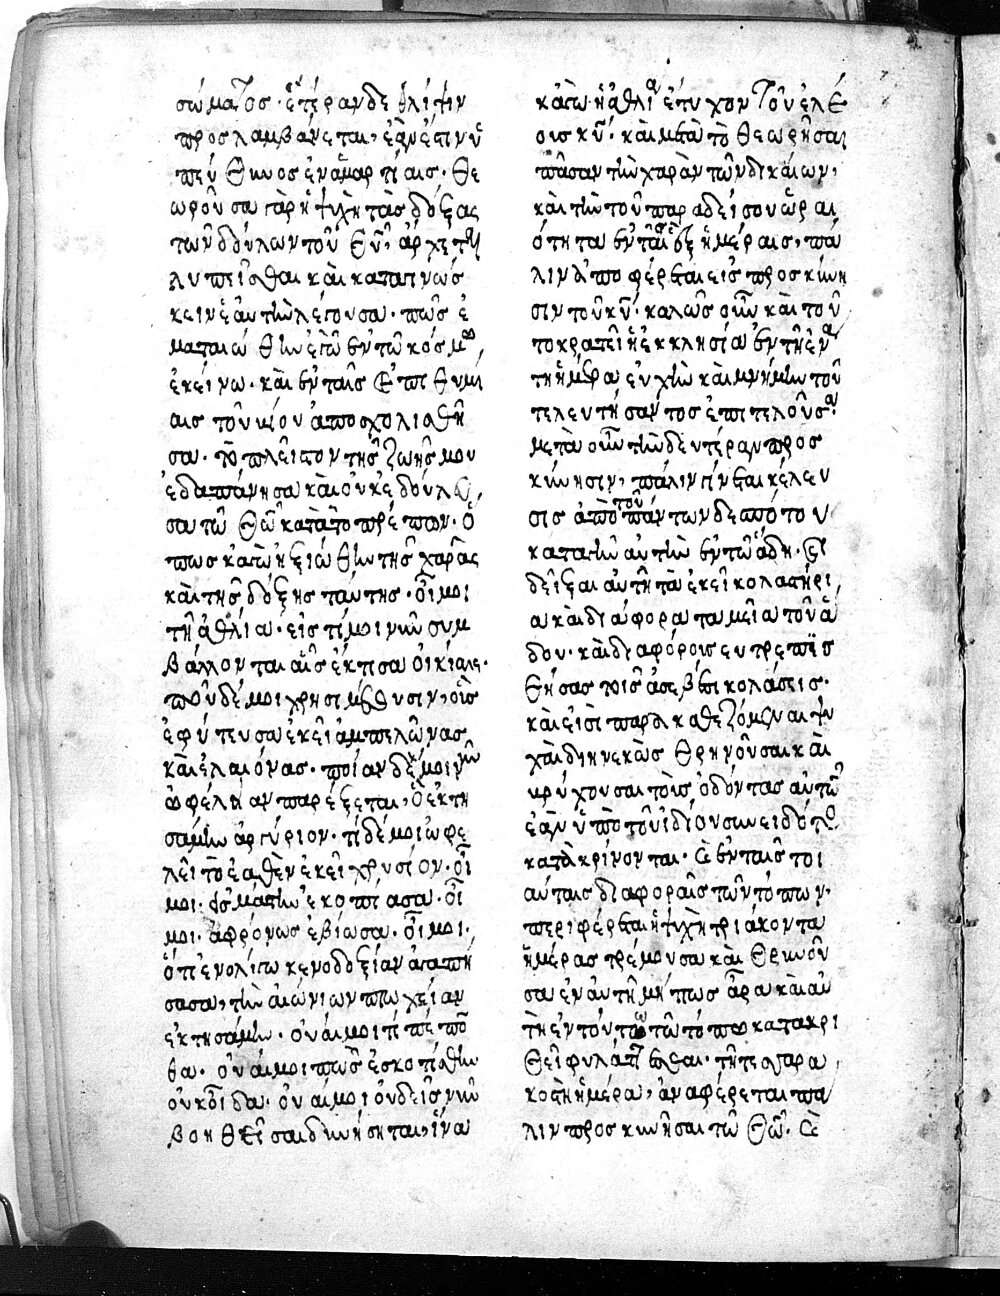 σώματος· ἑτέραν δὲ θλίψιν
προσλαμβάνεται, ἐὰν ἐστὶν ὑ
πεύθυνος ἐν ἁμαρτίαις. Θε
ωροῦσα γὰρ ἡ ψυχὴ τὰς δόξας
τῶν δούλων τοῦ θῦ, ἄρχεται
λυπεῖσθαι καὶ καταγινώσ
κειν ἑαυτὴν λέγουσα· πῶς ἐ
ματαιώθην ἐγὼ ἐν τῶ κόσμω
ἐκείνω· καὶ ἐν ταῖς ἐπιθυμί
αις τοῦ βίου ἀποσχολιαθῆ
σα· τὸ πλεῖστον τῆς ζωῆς μου
ἐδαπάνησα καὶ οὐκ ἐδούλευ
σα τῶ θῶ κατὰ τὸ πρέπον· ὅ
πως κἀγὼ ἠξιώθην τῆς χαρᾶς
καὶ τῆς δόξης ταύτης· οἴμοι
τῆ ἀθλία· εἰς τί μοι νῦν συμ
βάλλονται αἷς ἔκτισα οἰκίαις·
ποῦ δέ μοι χρησιμεύουσιν, οἷς
ἐφύτευσα ἐκεῖ ἀμπελῶνας
καὶ ἐλαιόνας· ποίαν δέ μοι νῦν
ὠφέλειαν παρέξεται, ὃ ἐκτη
σάμην ἀργύριον· τί δέ μοι ὠφε
λεῖ τὸ ἐαθὲν ἐκεῖ χρυσίον· οἴ
μοι· εἰς μάτην ἐκοπίασα· οἴ
μοι· ἀφρόνως ἐβίωσα· οἴμοι·
ὅτι ἐν ὀλίγω κενοδοξίαν ἀγαπή
σασα, τὴν αἰώνιων πτωχείαν
ἐκτησάμην· οὐαί μοι τί πέπον
θα· οὐαί μοι πῶς ἐσκοτίσθην
οὐκ οἶδα· οὐαί μοι οὐδεὶς νῦν
βοηθεῖσαι δυνήσηται, ἵνα
κἀγὼ ἡ ἀθλία ἐπιτύχον τοῦ ἐλέ
ους κῦ· καὶ μετὰ τὸ θεωρῆσαι
πᾶσαν τὴν χαρὰν τῶν δικαίων,
καὶ τὴν τοῦ παραδείσου ὡραι
ότητα ἐν ταῖς ἓξ ἡμέραις, πά
λιν ἀποφέρεται εἰς προσκύνη
σιν τοῦ κῦ· καλῶς οὖν καὶ τοῦ
το κρατεῖ ἡ ἐκκλησία ἐν τῆ ἐνά
τη ἡμέρα εὐχὴν καὶ μνήμην τοῦ
τελευτήσαντος ἐπιτελοῦσα·
μετὰ οὖν τὴν δευτέραν προσ
κύνησιν, πάλιν γίνεται κέλευ
σις ἀπὸ τοῦ πάντων δεσπότου
καταγῖν αὐτὴν ἐν τῶ ἅδη· καὶ
δεῖξαι αὐτῆ τὰ ἐκεῖ κολαστήρι
α καὶ διάφορα ταμεῖα τοῦ ἅ
δου· καὶ διαφόροις εὐτρεπισ
θήσας τοῖς ἀσεβέσι κολάσεις·
καὶ εἰσὶ παρακαθεζόμεναι ψυ
χαὶ διηνεκῶς θρηνοῦσαι καὶ
βρύχουσαι τοὺς ὀδόντας αὐτῶν
ἐὰν ὑπὸ τοῦ ἰδίου συνειδότος
κατακρίνονται· καὶ ἐν ταῖς τοι
αύταις διαφοραῖς τῶν τόπων·
περιφέρεται ἡ ψυχὴ τριάκοντα
ἡμέρας τρέμουσα καὶ θρηνοῦ
σα ἐν αὐτῆ μήπως ἄρα καὶ αὐ
τὴ ἐν τούτω τῶ τόπω κατακρι
θεῖ φυλάττεσθαι· τῆ τεσσαρα
κοστῆ ἡμέρα, ἀναφέρεται πά
λιν προσκυνῆσαι τῶ θῶ· καὶ